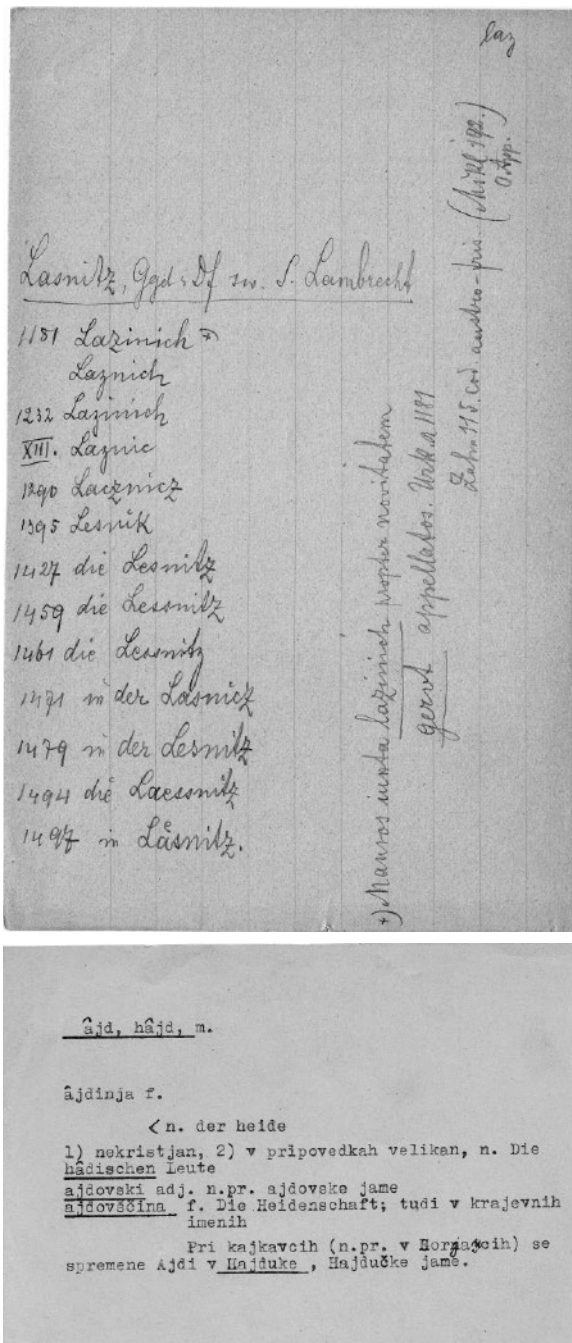 laz
Lasnitz, Ggd. Df sw. S. Lambrecht
1181 Lazinich +)
Laznich
1232 Lazinich
XIII. Laznic
1290 Lacznicz
1395 Lesnik
1427 die Lesnitz
1459 die Lessnitz
1461 die Lessnitz
1471 in der Lasnicz
1479 in der Lesnitz
1494 die Laessnitz
1497 in Låsnitz.
+) Mansos iuxta lazinich propter novitatem
gerut appellatos. Urk. a 1181
Zahn 115. cod. austro-fris. (Mikl 192.)
O. App.
âjd, hâjd, m.
âjdinja f.
< n. der heide
1) nekristjan, 2) v pripovedkah velikan, n. Die
hâdischen Leute
ajdovski adj. n.pr. ajdovske jame
ajdovščina f. Die Heidenschaft; tudi v krajevnih
imenih
Pri kajkavcih (n.pr. v) se
spremene Ajdi v Hajduke , Hajdučke jame.